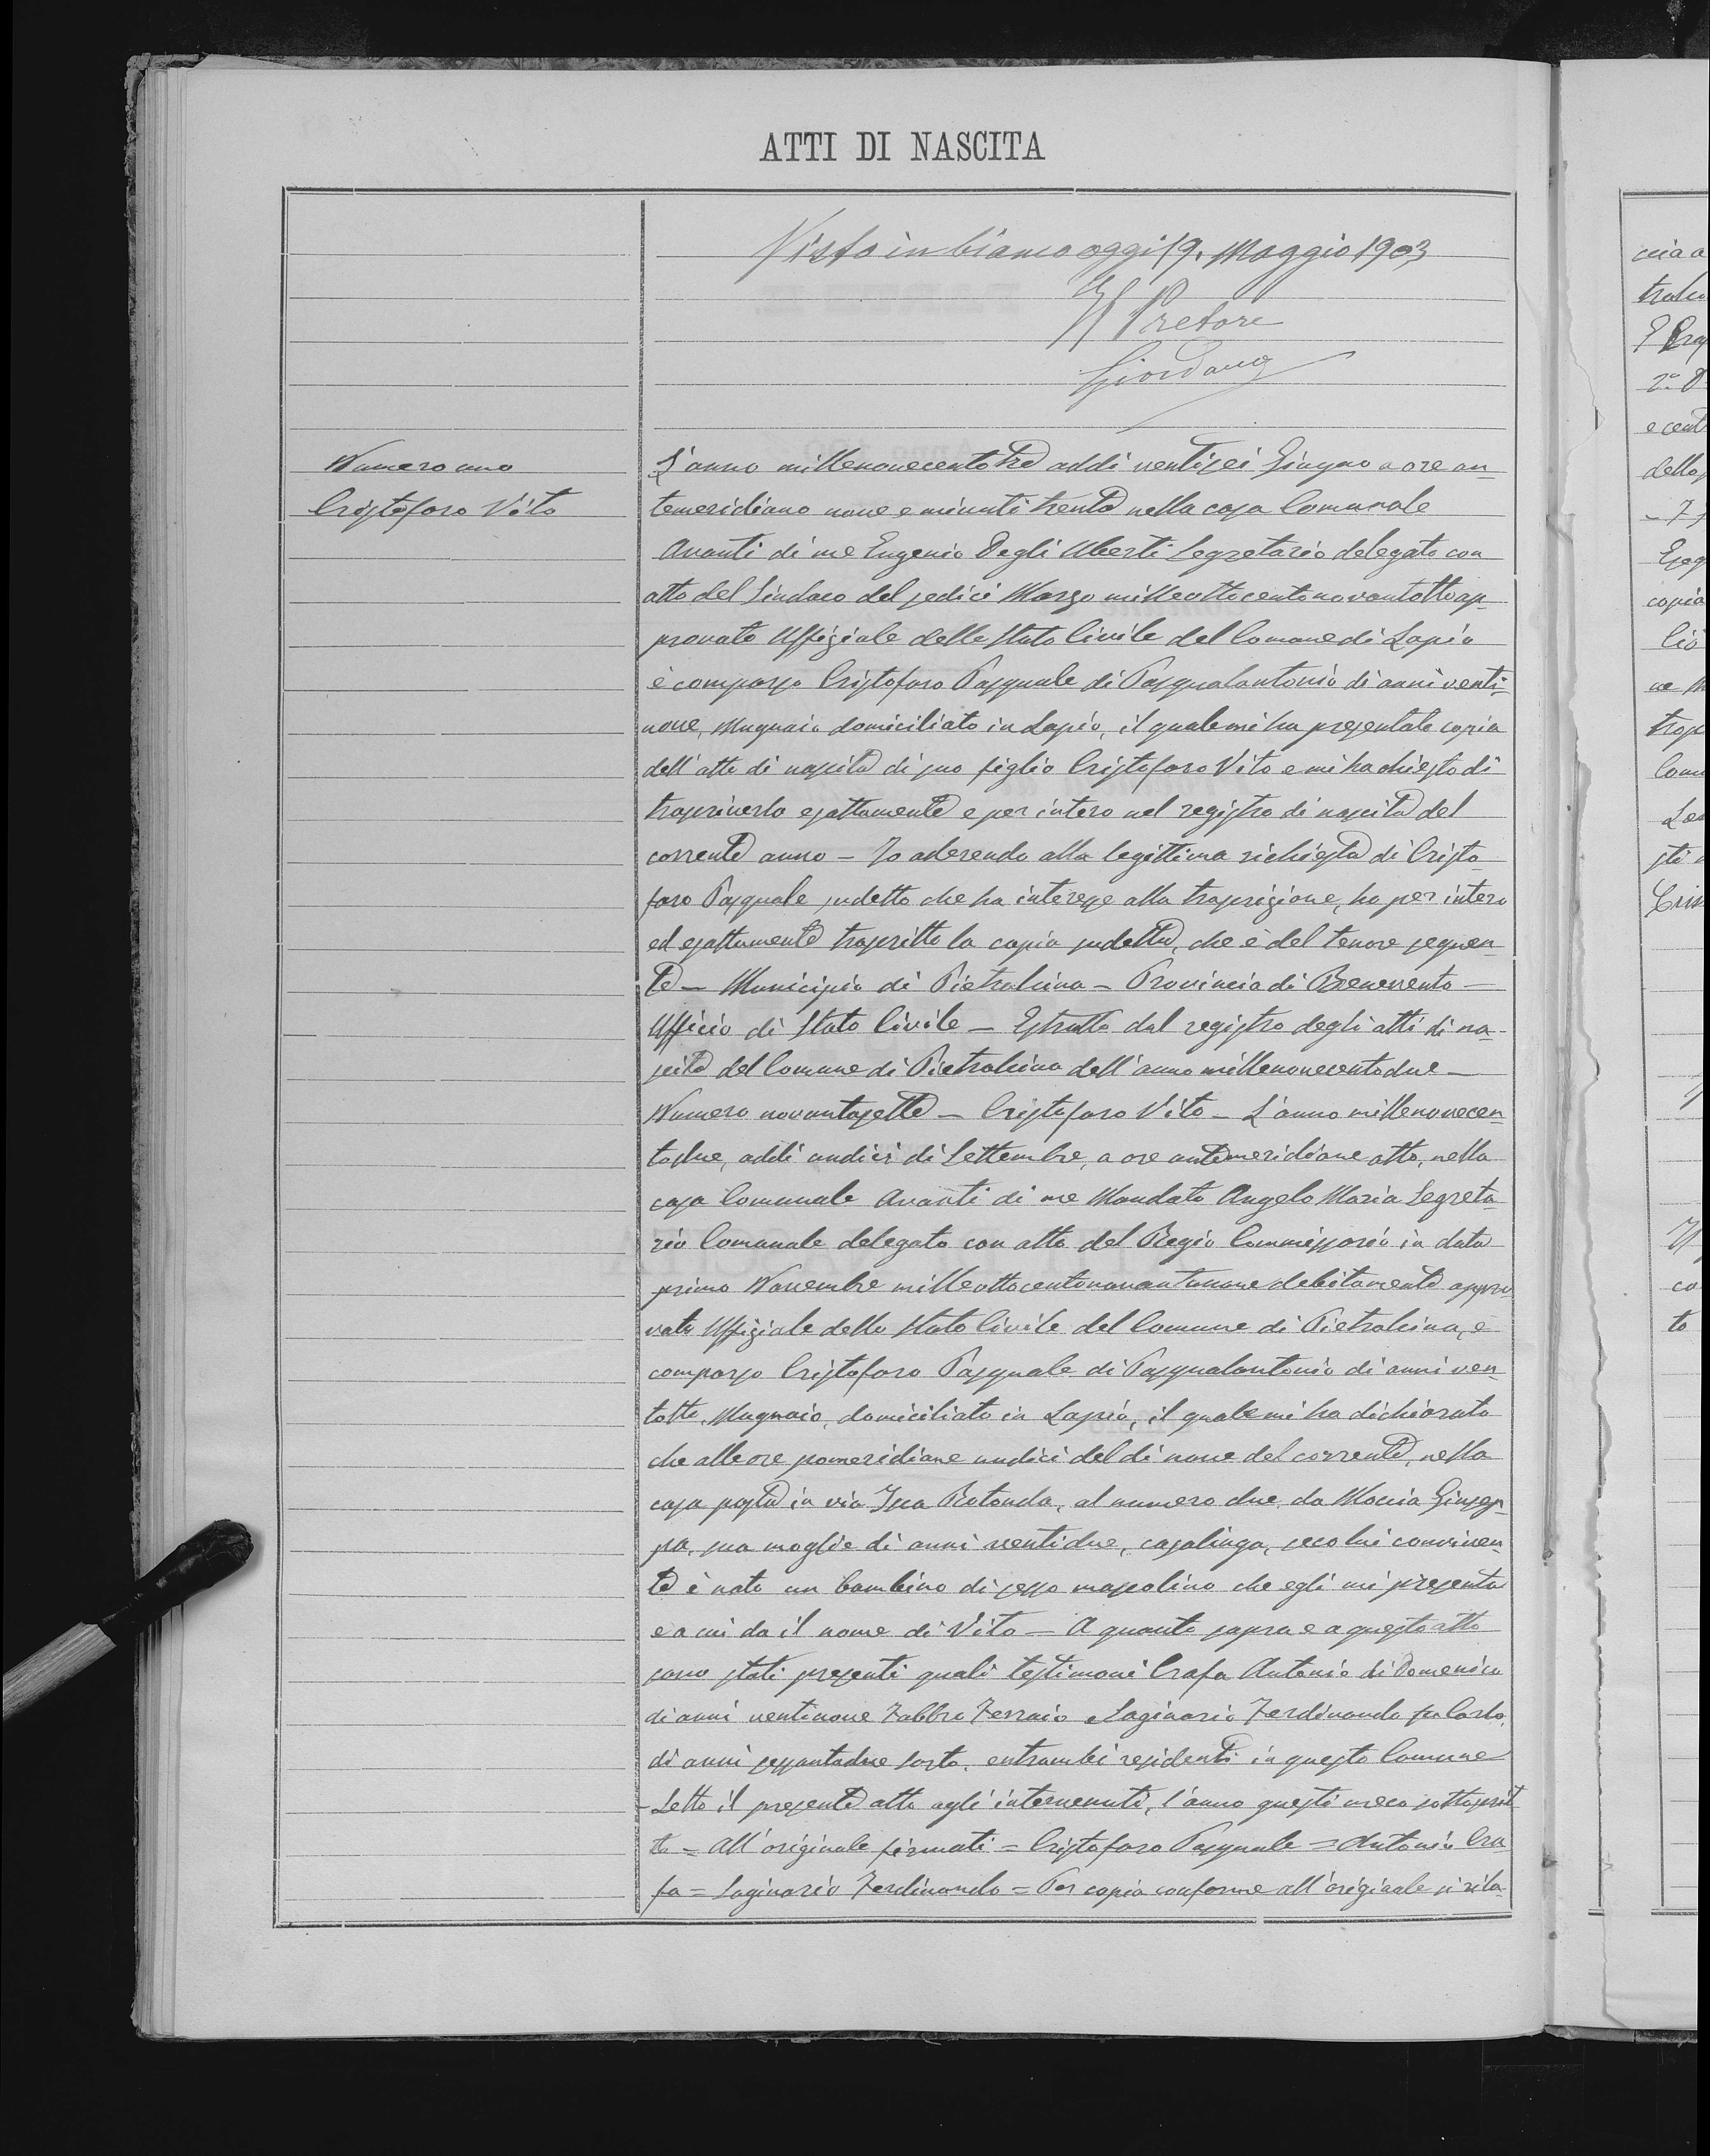 ATTI DI NASCITA
Visto in bianco oggi 19. Maggio 1903
Il Pretore
Giordano
Numero uno
Cristofaro Vito
L'anno millenovecentotre addi ventisei Giugno a ore an-
temeridiane nove e minuti trenta nella casa Comunale
Avanti di me Eugenio Degli Uberti Segretario delegato con
atto del Sindaco del sedici Marzo milleottocentonovantotto ap-
provato Uffiziale dello Stato Civile del Comune di Lapio
è comparso Cristofaro Pasquale di Pasqualantonio di anni venti-
nove, Mugnaio domiciliato in Lapio, il quale mi ha presentato copia
dell'atto di nascita di suo figlio Cristofaro Vito e mi ha chiesto di
trascriverlo esattamente e per intero nel registro di nascita del
corrente anno - Io aderendo alla legittima richiesta di Cristo-
faro Pasquale sudetto che ha interesse alla trascrizione, ho per intero
ed esattamente trascritto la copia sudetta, che è del tenore seguen-
te - Municipio di Pietralcina - Provincia di Benevento -
Ufficio di Stato Civile - Estratto dal registro degli atti di na-
scita del Comune di Pietralcina dell'anno millenovecentodue -
Numero novantasette - Cristofaro Vito - L'anno millenovecen-
todue, addi undici di Settembre, a ore antemeridiane otto, nella
casa Comunale Avanti di me Mandato Angelo Maria Segreta-
rio Comunale delegato con atto del Regio Commissario in data
primo Novembre milleottocentonovantanove debitamente appro-
vato Uffiziale dello Stato Civile del Comune di Pietralcina, e
comparso Cristofaro Pasquale di Pasqualantonio di anni ven-
totto, Mugnaio, domiciliato in Lapio, il quale mi ha dichiarato
che alle ore pomeridiane undici del di nove del corrente, nella
casa posta in via Isca Rotonda, al numero due, da Moccia Giusep-
pa, sua moglie di anni ventidue, casalinga, seco lui conviven-
te è nato un bambino di sesso mascolino che egli mi presenta
e a cui da il nome di Vito - A quanto sopra e a questo atto
sono stati presenti quali testimoni Crafa Antonio di Domenico
di anni ventinove Fabbro Ferraio e Saginario Ferdinando fu Carlo,
di anni sessantadue Sarto, entrambi residenti in questo Comune
- Letto il presente atto agli intervenuti, l'anno questi meco sottoscrit
to = All'originale firmati = Cristofaro Pasquale = Antonio Cra-
fa = Saginario Ferdinando = Per copia conforme all'originale si rila-